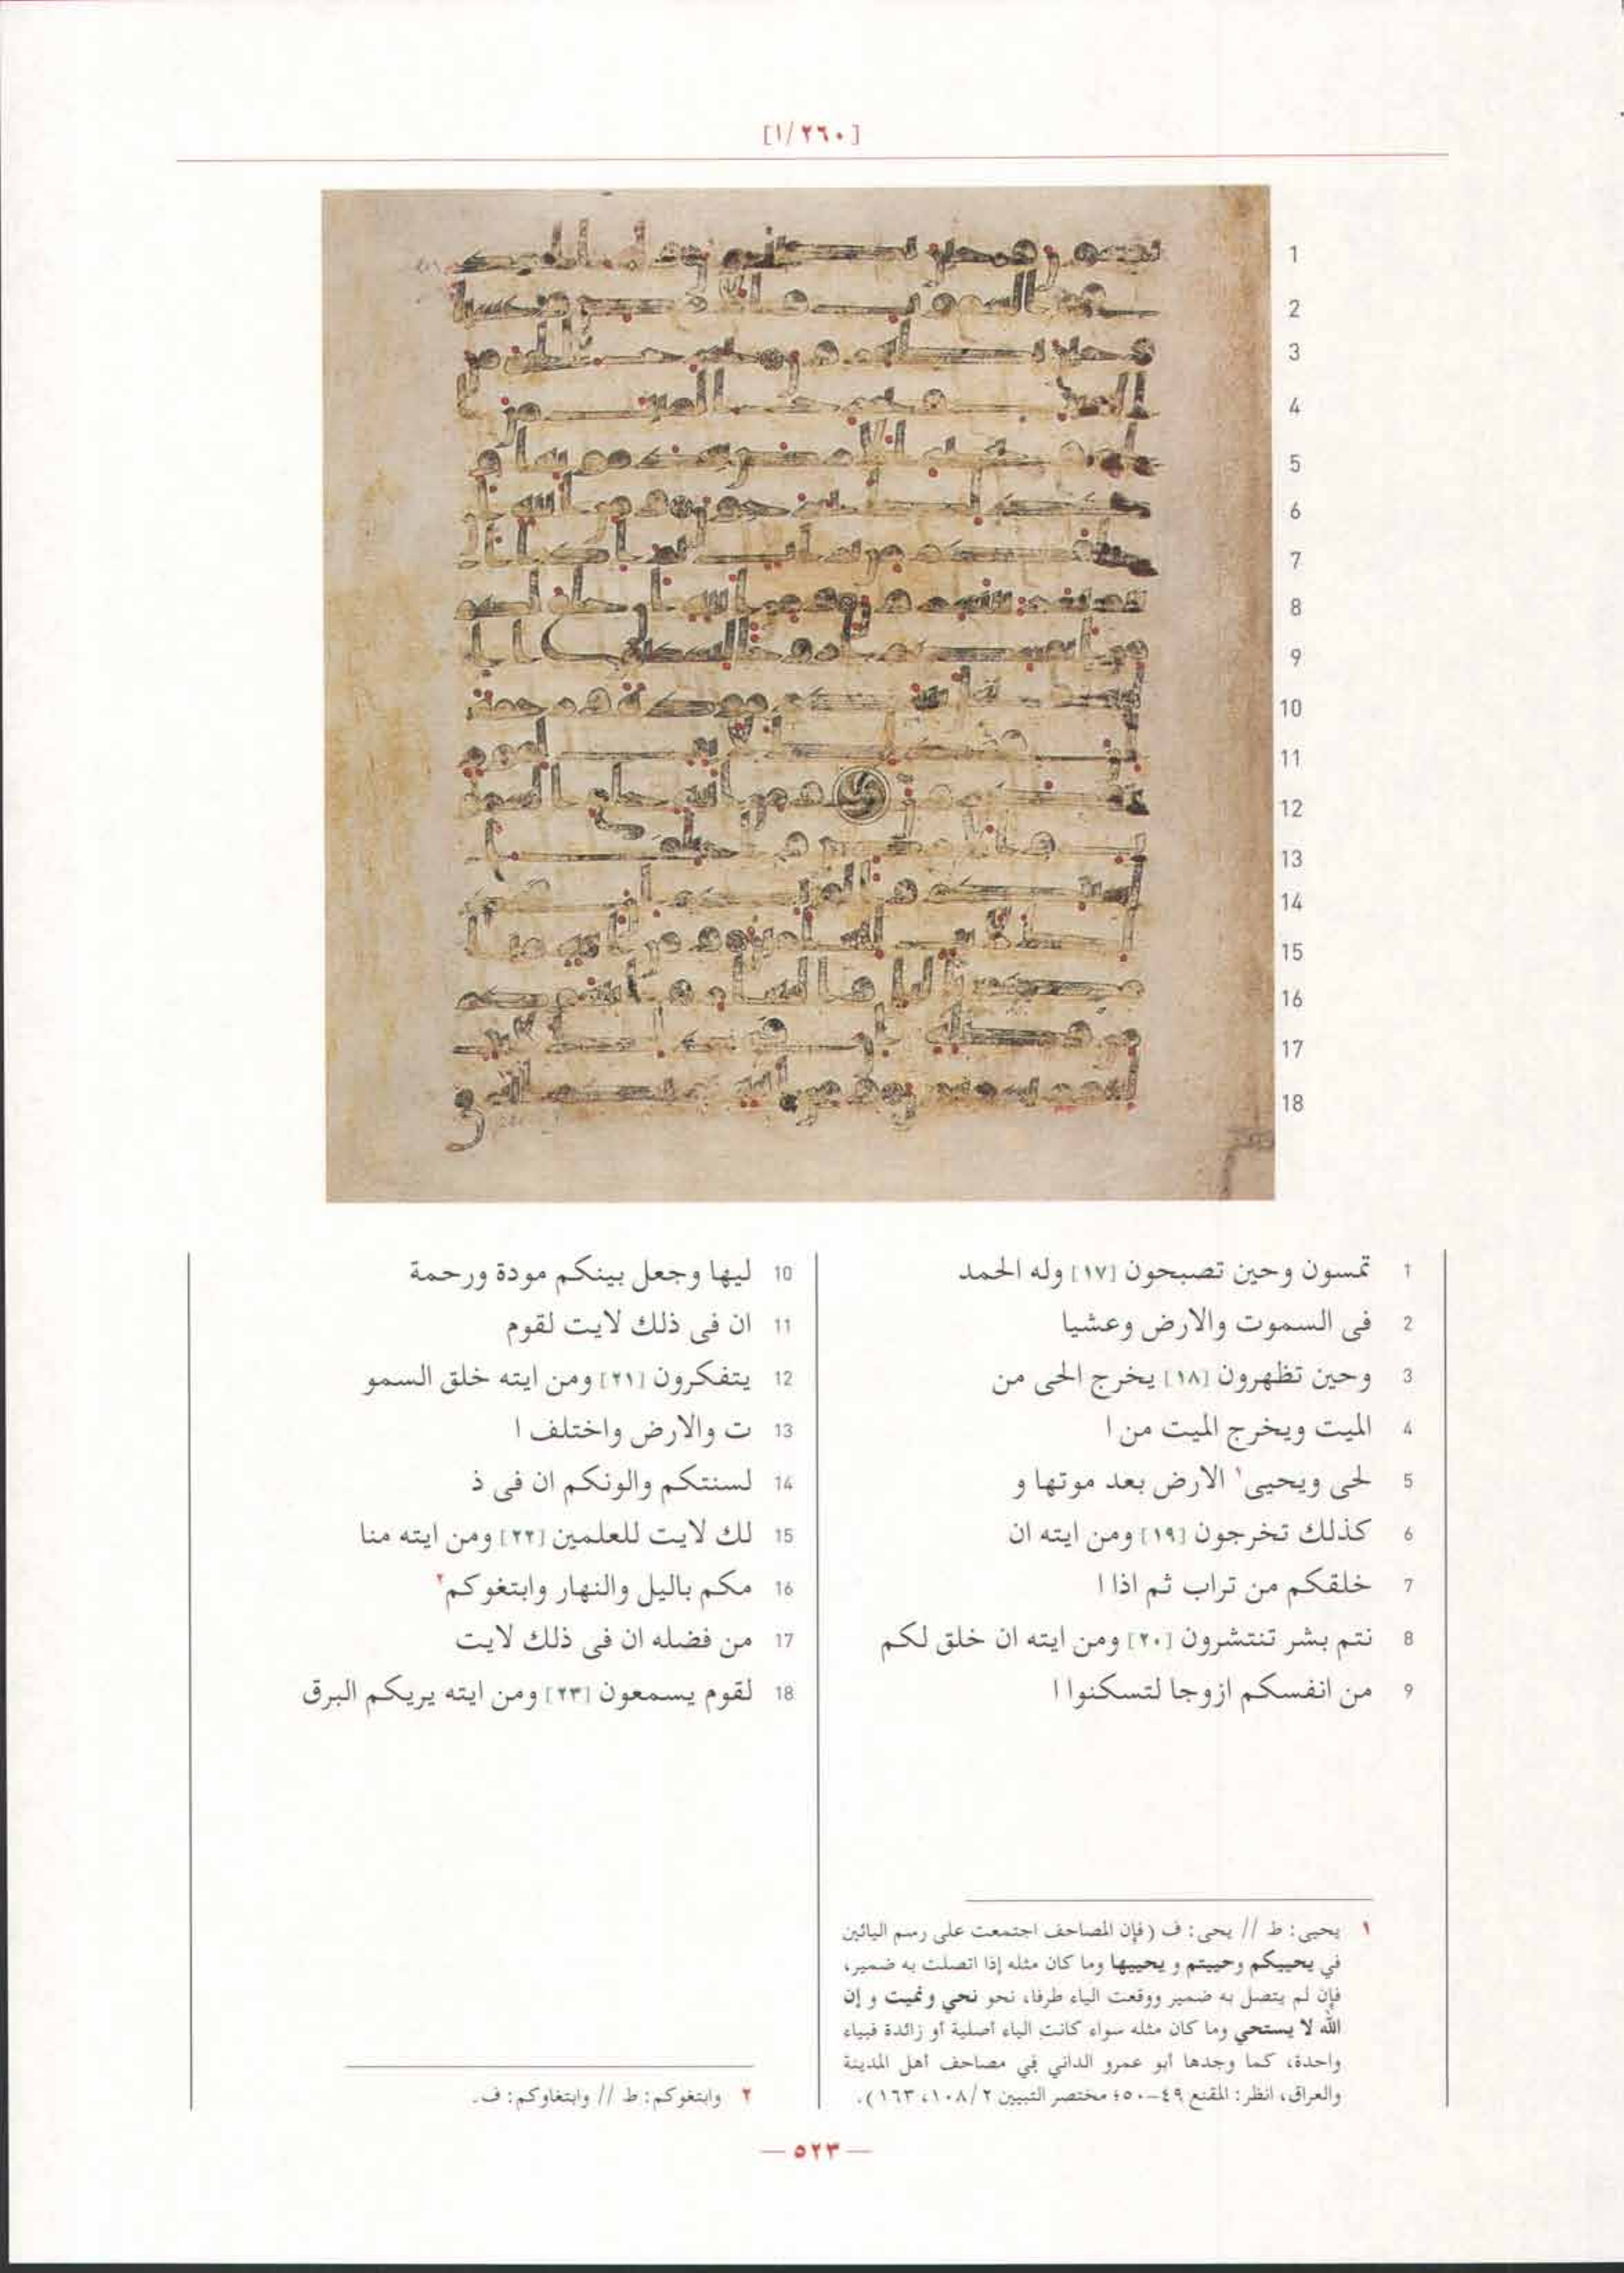 [٢٦٠/١]
1
2
3
4
5
6
7
8
9
10
11
12
13
14
15
16
17
18
1 تمسون وحين تصبحون [١٧] وله الحمد
2 فى السموت والارض وعشيا
3 وحين تظهرون [١٨] يخرج الحى من
4 الميت ويخرج الميت من ا
5 لحى ويحيى١ الارض بعد موتها و
6 كذلك تخرجون [١٩] ومن ايته ان
7 خلقكم من تراب ثم اذا ا
8 نتم بشر تنتشرون [٢٠] ومن ايته ان خلق لكم
9 من انفسكم ازوجا لتسكنوا ا
10 ليها وجعل بينكم مودة ورحمة
11 ان فى ذلك لايت لقوم
12 يتفكرون [٢١] ومن ايته خلق السمو
13 ت والارض واختلف ا
14 لسنتكم والونكم ان فى ذ
15 لك لايت للعلمين [٢٢] ومن ايته منا
16 مكم باليل والنهار وابتغوكم٢
17 من فضله ان فى ذلك لايت
18 لقوم يسمعون [٢٣] ومن ايته يريكم البرق
١ يحيى: ط // يحى: ف (فإن المصاحف اجتمعت على رسم اليائين
في يحييكم وحييتم و يحييها وما كان مثله إذا اتصلت به ضمير،
فإن لم يتصل به ضمير ووقعت الياء طرفا، نحو نحي ونميت و إن
الله لا يستحي وما كان مثله سواء كانت الياء أصلية أو زائدة فبياء
واحدة، كما وجدها أبو عمرو الداني في مصاحف أهل المدينة
والعراق، انظر: المقنع ٤٩-٥٠؛ مختصر التبيين ١٠٨/٢، ١٦٣).
٢ وابتغوكم: ط // وابتغاوكم: ف.
— ٥٢٣ —